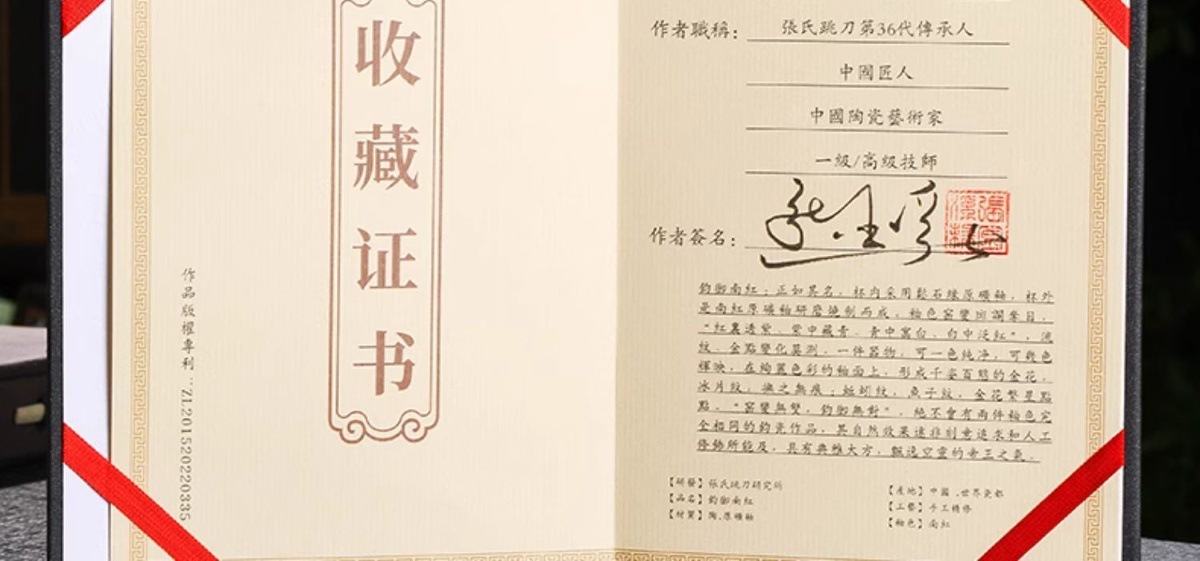 收藏证书
作品版權專利：ZL201520220335
作者職稱：張氏跳刀第36代傳承人
中國匠人
中國陶瓷藝術家
一級/高級技師
作者簽名：
鈞御南紅：正如其名，杯内采用鬆石綠原礦釉，杯外
是南紅原礦釉研磨燒制而成，釉色窑變斑斕奪目，
“紅裏透紫、紫中藏青、青中寓白、白中泛紅”，流
紋、金點變化莫測，一件器物，可一色純净，可幾色
輝映，在絢麗色彩的釉面上，形成千姿百態的金花，
冰片紋，撫之無痕；蚯蚓紋，魚子紋，金花繁星點
點，“窑變無雙，鈞御無對”，絶不會有兩件釉色完
全相同的鈞瓷作品，其自然效果遠非刻意追求和人工
修飾所能及，具有典雅大方，飄逸空靈的帝王之氣。
【研發】張氏跳刀研究所
【品名】鈞御南紅
【材質】陶.原礦釉
【產地】中國.世界瓷都
【工藝】手工精修
【釉色】南紅